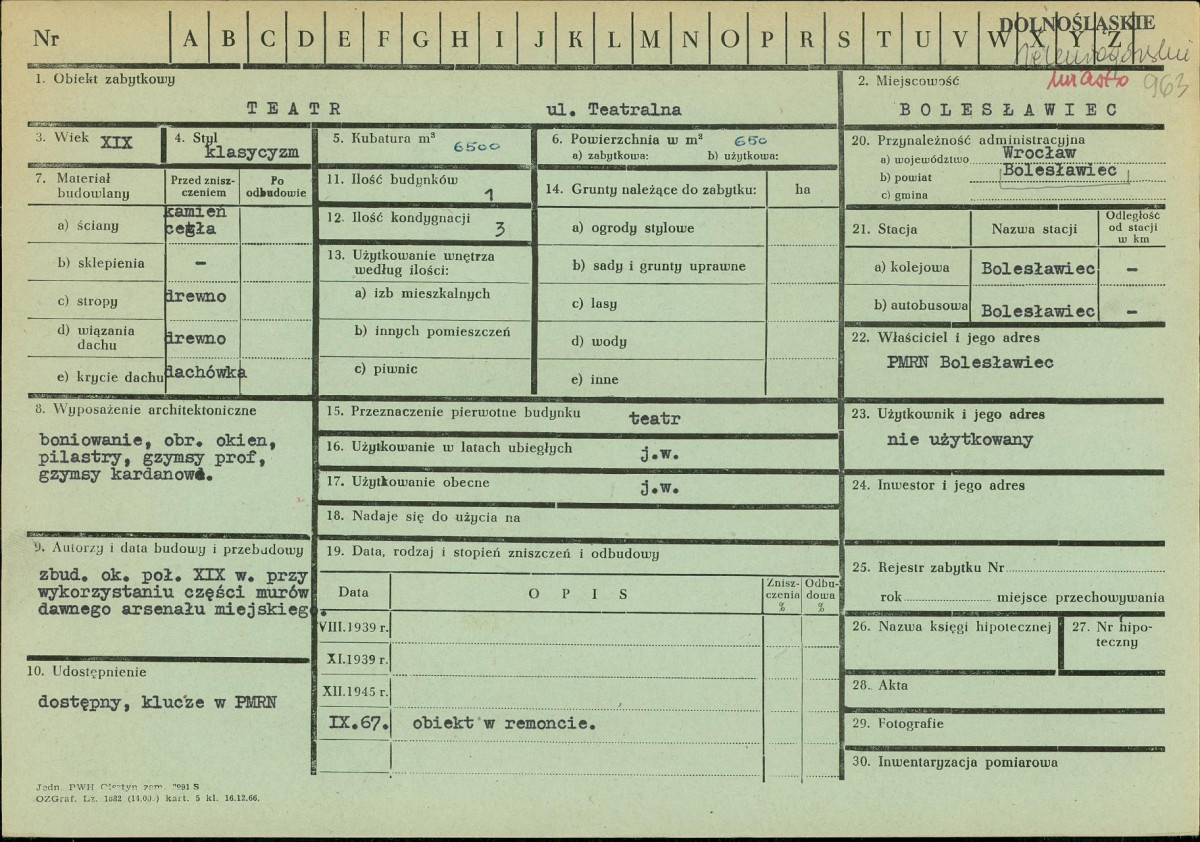 Nr A B C D E F G H I J K L M N O P R S T U V W X Y Z
DOLNOŚLĄSKIE
miasto 963
1. Obiekt zabytkowy
TEATR ul. Teatralna
2. Miejscowość
BOLESŁAWIEC
3. Wiek XIX
4. Styl
klasycyzm
5. Kubatura m³ 6500
6. Powierzchnia w m² 650
a) zabytkowa: b) użytkowa:
7. Materiał budowlany
Przed zniszczeniem
Po odbudowie
a) ściany kamień
cegła
b) sklepienia –
c) stropy drewno
d) wiązania dachu drewno
e) krycie dachu dachówka
8. Wyposażenie architektoniczne
boniowanie, obr. okien,
pilastry, gzymsy prof,
gzymsy kardanowe.
9. Autorzy i data budowy i przebudowy
zbud. ok. poł. XIX w. przy
wykorzystaniu części murów
dawnego arsenału miejskieg.
10. Udostępnienie
dostępny, klucze w PMRN
11. Ilość budynków 1
12. Ilość kondygnacji 3
13. Użytkowanie wnętrza
według ilości:
a) izb mieszkalnych
b) innych pomieszczeń
c) piwnic
14. Grunty należące do zabytku: ha
a) ogrody stylowe
b) sady i grunty uprawne
c) lasy
d) wody
e) inne
15. Przeznaczenie pierwotne budynku teatr
16. Użytkowanie w latach ubiegłych j.w.
17. Użytkowanie obecne j.w.
18. Nadaje się do użycia na
19. Data, rodzaj i stopień zniszczeń i odbudowy
Data OPIS Zniszczenia % Odbudowa %
VIII.1939 r.
XI.1939 r.
XII.1945 r.
IX.67. obiekt w remoncie.
20. Przynależność administracyjna
a) województwo Wrocław
b) powiat Bolesławiec
c) gmina
21. Stacja Nazwa stacji Odległość od stacji w km
a) kolejowa Bolesławiec –
b) autobusowa Bolesławiec –
22. Właściciel i jego adres
PMRN Bolesławiec
23. Użytkownik i jego adres
nie użytkowany
24. Inwestor i jego adres
25. Rejestr zabytku Nr
rok miejsce przechowywania
26. Nazwa księgi hipotecznej
27. Nr hipoteczny
28. Akta
29. Fotografie
30. Inwentaryzacja pomiarowa
Jedn. PWH Olsztyn zam. S
OZGraf. Lz. 1882 kart. 5 kl. 16.12.66.